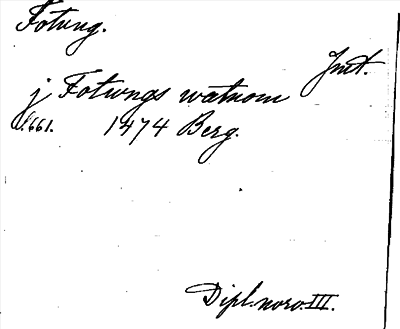 Fotung.
Jmt.
j Fotungs watnom
s.661. 1474 Berg.
Dipl. norv. III.